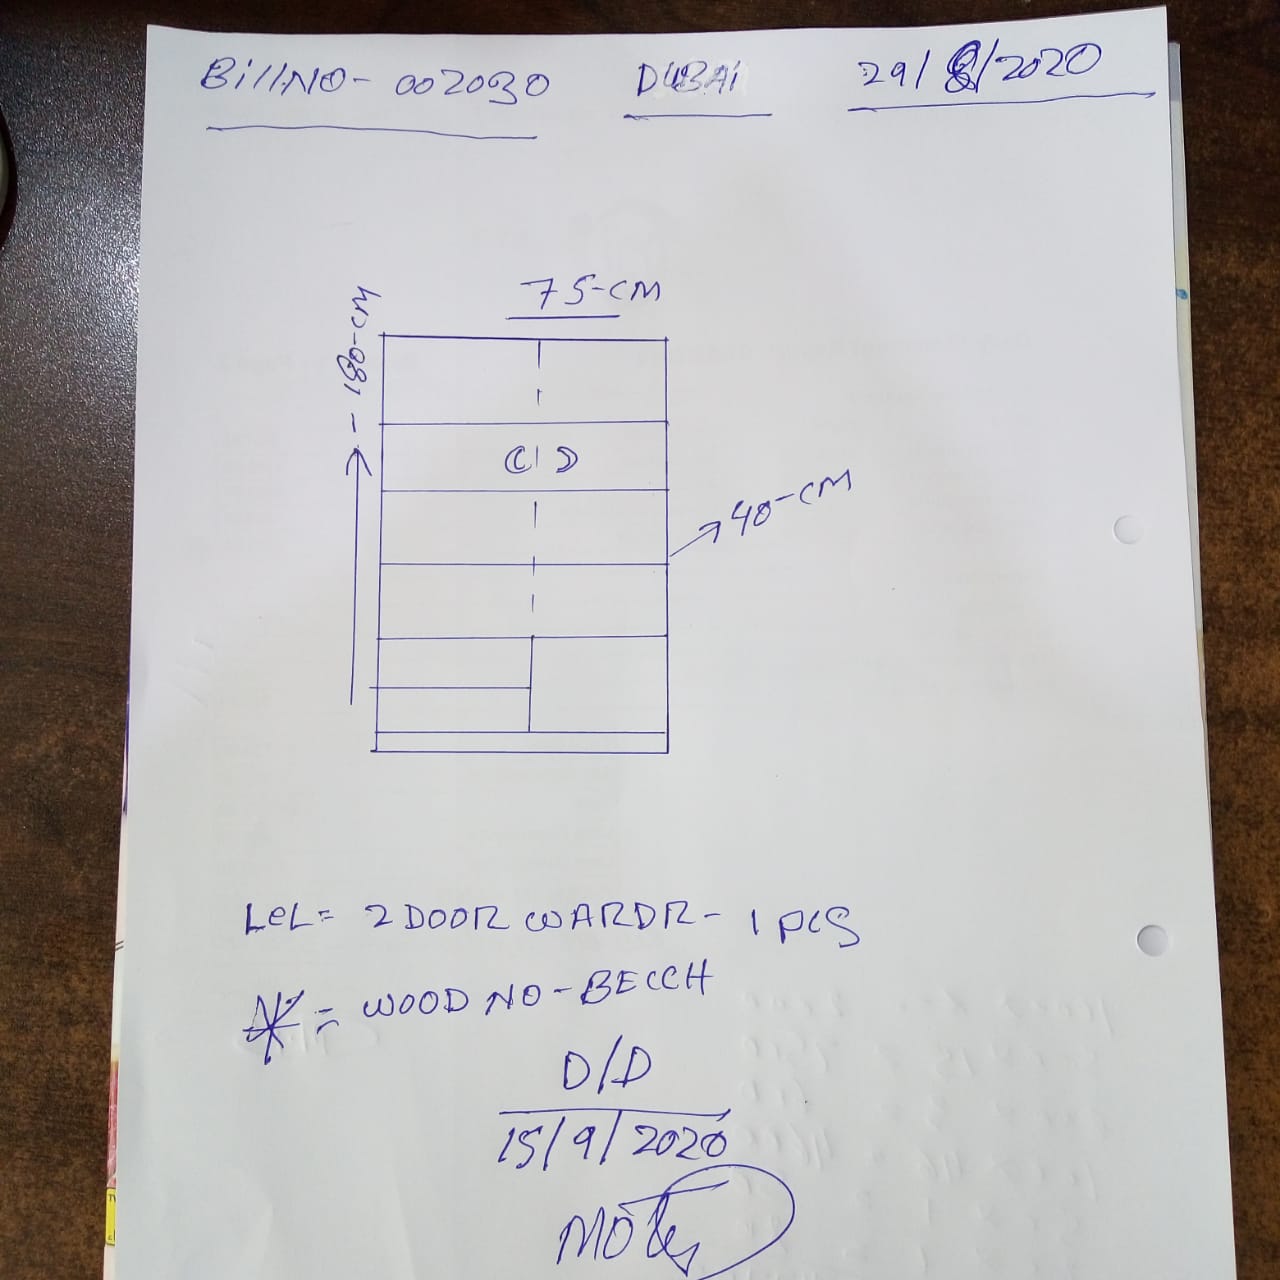 BillNO- 002030 DUBAi 29/8/2020
75-CM
180-CM
40-CM
LeL= 2 DOOR WARDR- 1 PCS
= WOOD NO-BECCH
D/D
15/9/2020